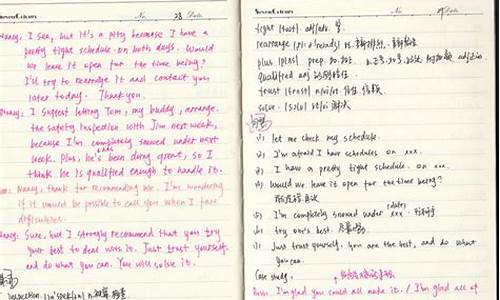 SevenColours No. 28 Date
Nancy, I see, but it's a pity because I have a
pretty tight schedule on both days. Would
we leave it open for the time being?
I'll try to rearrange it and contact you
later today. Thank you.
I suggest letting Tom, my buddy, arrange
the safety inspection with Jim next week,
because I'm completely snowed under next
week. Plus, he's been doing great, so I
think he is qualified enough to handle it.
Nancy, thank for recommending me. I'm wondering
if it would be possible to call you when I face
difficulties.
Sure, but I strongly recommend that you try
your best to deal with it. Just trust yourself.
and do what you can. You will solve it.
inspection
SevenColours No. Date
tight [taɪt] adj/adv. 紧
rearrange vt. 重新排列,
plus [plʌs] prep.
qualified adj
trust [trʌst] n/vi/vt 信任, 信赖
solve vt/vi 解决
let me check my schedule.
I'm afraid I have schedules on xxx.
I have a pretty tight schedule on xxx.
Would we leave it open for the time being?
I'm completely snowed under xxx. (date)
try one's best
Just trust yourself. You are the best, and do what
you can.
Case study.
Boss: I'm glad you could all make it. / I'm glad all of